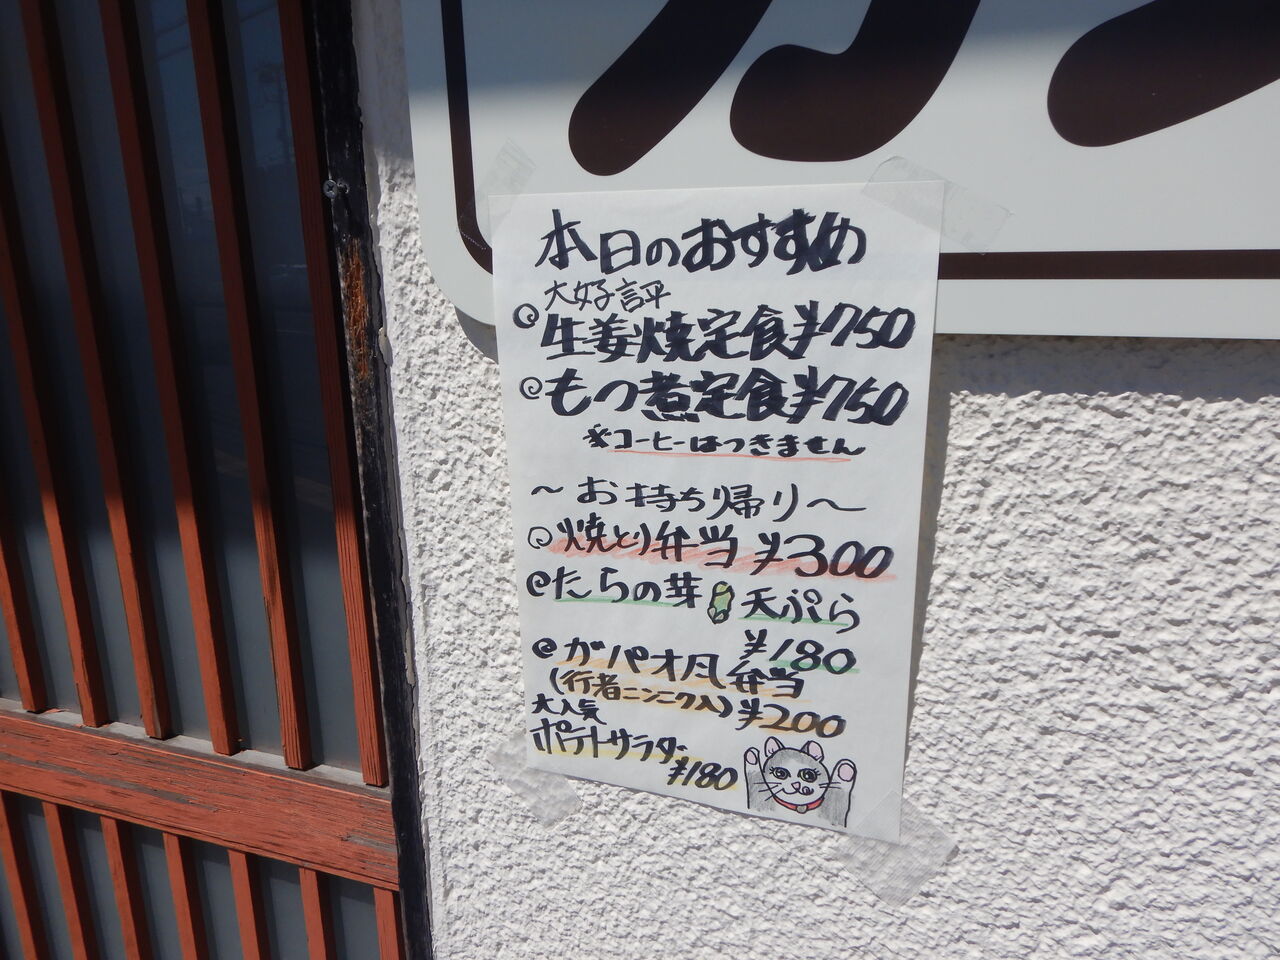 本日のおすすめ
大好評
生姜焼定食¥750
もつ煮定食¥750
※コーヒーはつきません
~お持ち帰り~
焼とり弁当¥300
たらの芽天ぷら
¥180
ガパオ風弁当
(行者ニンニク入)¥200
大人気
ポテトサラダ
¥180